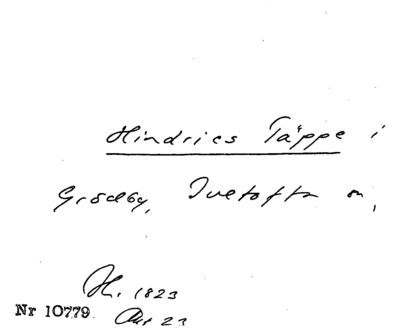 Hindrics Täppe i
Grödby, Ivetofta sn,
H. 1823
Akt 23
Nr 10779